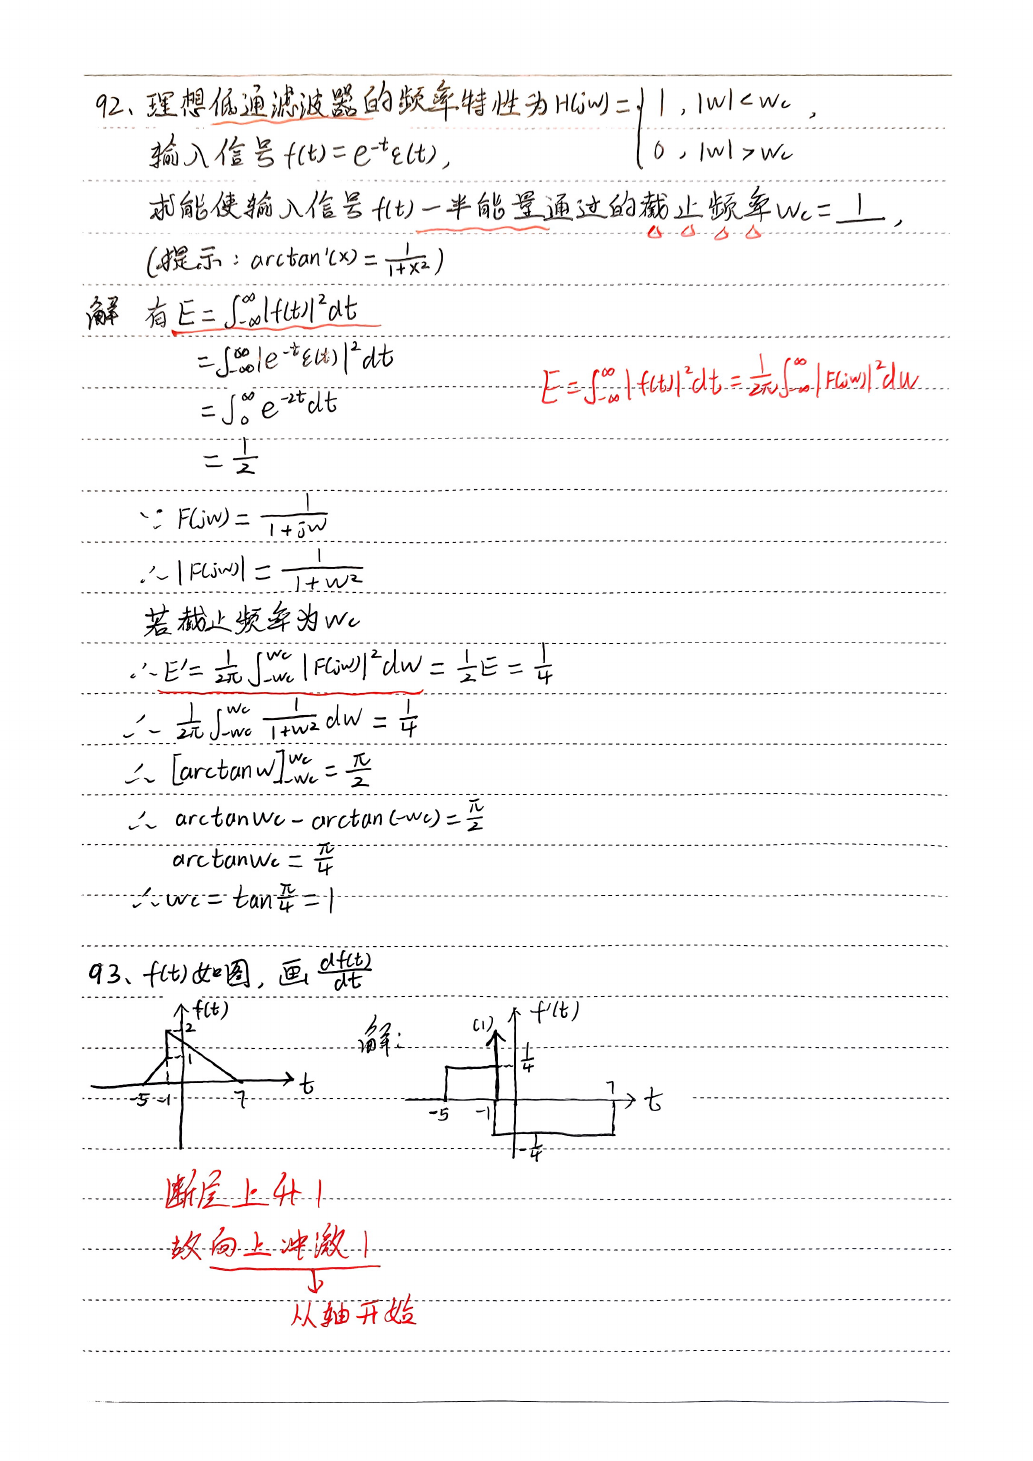 92、理想低通滤波器的频率特性为H(jw)={1, |w|<wc ,
0, |w|>wc
输入信号f(t)=e^{-t}ε(t),
求能使输入信号f(t)一半能量通过的截止频率wc=1,
(提示:arctan'(x)=\frac{1}{1+x^2})
解 有E=∫_{-∞}^{∞}|f(t)|^2dt
=∫_{-∞}^{∞}|e^{-t}ε(t)|^2dt
E=∫_{-∞}^{∞}|f(t)|^2dt=\frac{1}{2π}∫_{-∞}^{∞}|F(jw)|^2dw
=∫_0^{∞}e^{-2t}dt
=\frac{1}{2}
∵ F(jw)=\frac{1}{1+jw}
∴|F(jw)|=\frac{1}{1+w^2}
若截止频率为wc
∴E'=\frac{1}{2π}∫_{-wc}^{wc}|F(jw)|^2dw=\frac{1}{2}E=\frac{1}{4}
∴ \frac{1}{2π}∫_{-wc}^{wc}\frac{1}{1+w^2}dw=\frac{1}{4}
∴ [arctanw]_{-wc}^{wc}=\frac{π}{2}
∴ arctanwc-arctan(-wc)=\frac{π}{2}
arctanwc=\frac{π}{4}
∴wc=tan\frac{π}{4}=1
93、f(t)如图,画\frac{df(t)}{dt}
f(t)
2
1
-5 -1 7 t
解:
(1) f'(t)
\frac{1}{4}
-5 -1 7 t
-\frac{1}{4}
断层上升1
故向上冲激1
从轴开始